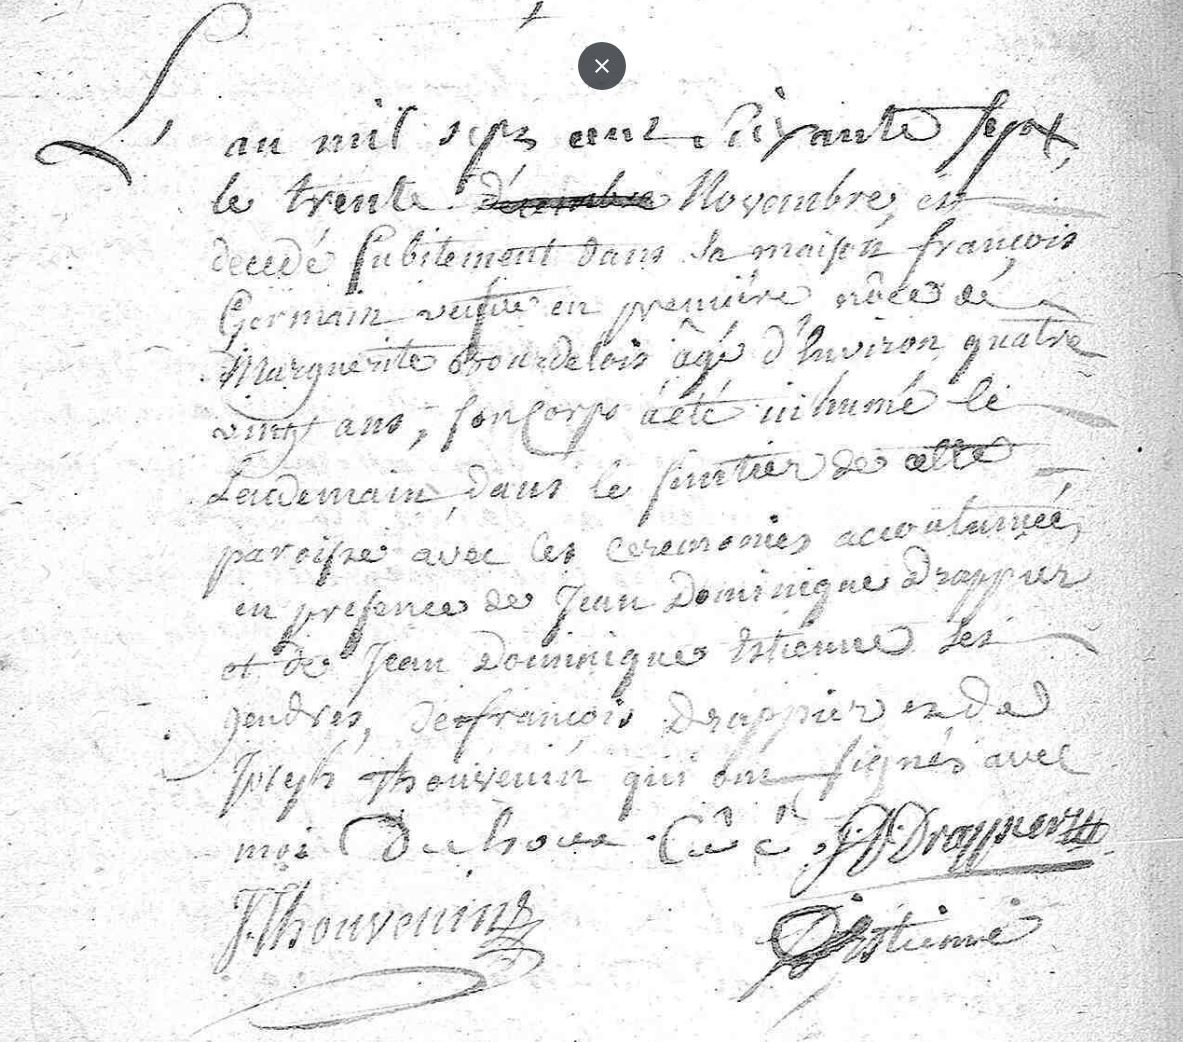 L'an mil sept cent soixante sept,
le trente décembre Novembre, est
decedé subitement dans sa maison françois
Germain veufve en première nôce de
Marguerite Bourdelois âgé d'Environ quatre
vingt ans, son Corps a été inhumé le
Lendemain dans le sintier de cette
paroisse avec les ceremonies accoutumées,
en presence de Jean Dominique Drappier
et de Jean Dominique Estienne ses
gendres, de françois Drappier et de
Joseph Thouvenin qui ont signés avec
moi Duhoux Curé J. D. Drappier
J. Thouvenin D Estienne